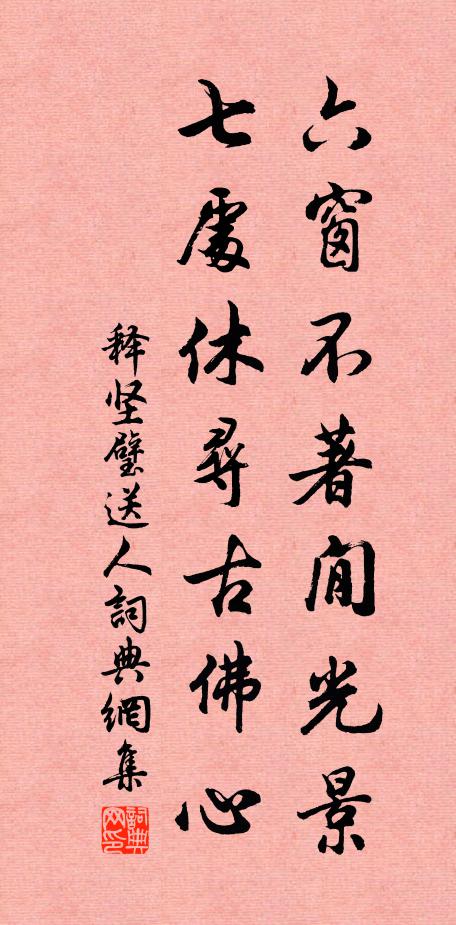 六窗不著閒光景
七處休尋古佛心
释坚璧送人詞典網集
詞典网印